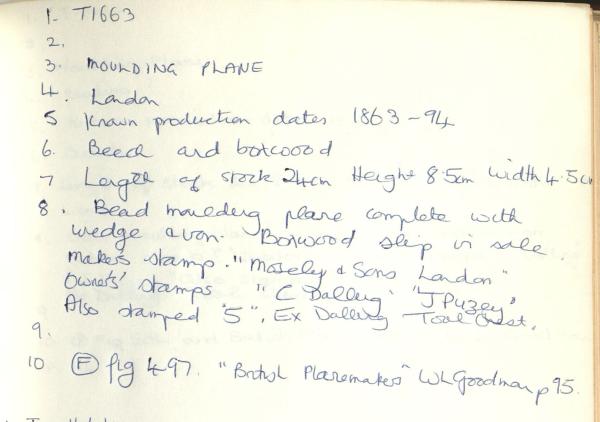 1. T1663
2.
3. MOULDING PLANE
4. London
5 Known production dates 1863-94
6. Beech and boxwood
7 Length of stock 24cm Height 8.5cm Width 4.5cm
8. Bead moulding plane complete with
wedge & iron. Boxwood slip in sole.
Maker's stamp. "Mosely & Sons London"
Owners' stamps "C Dalling" "J Puzey"
Also stamped "5". Ex Dalling Tool Chest.
9.
10 (F) fig 497. "British Planemakers" WLGoodman p95.